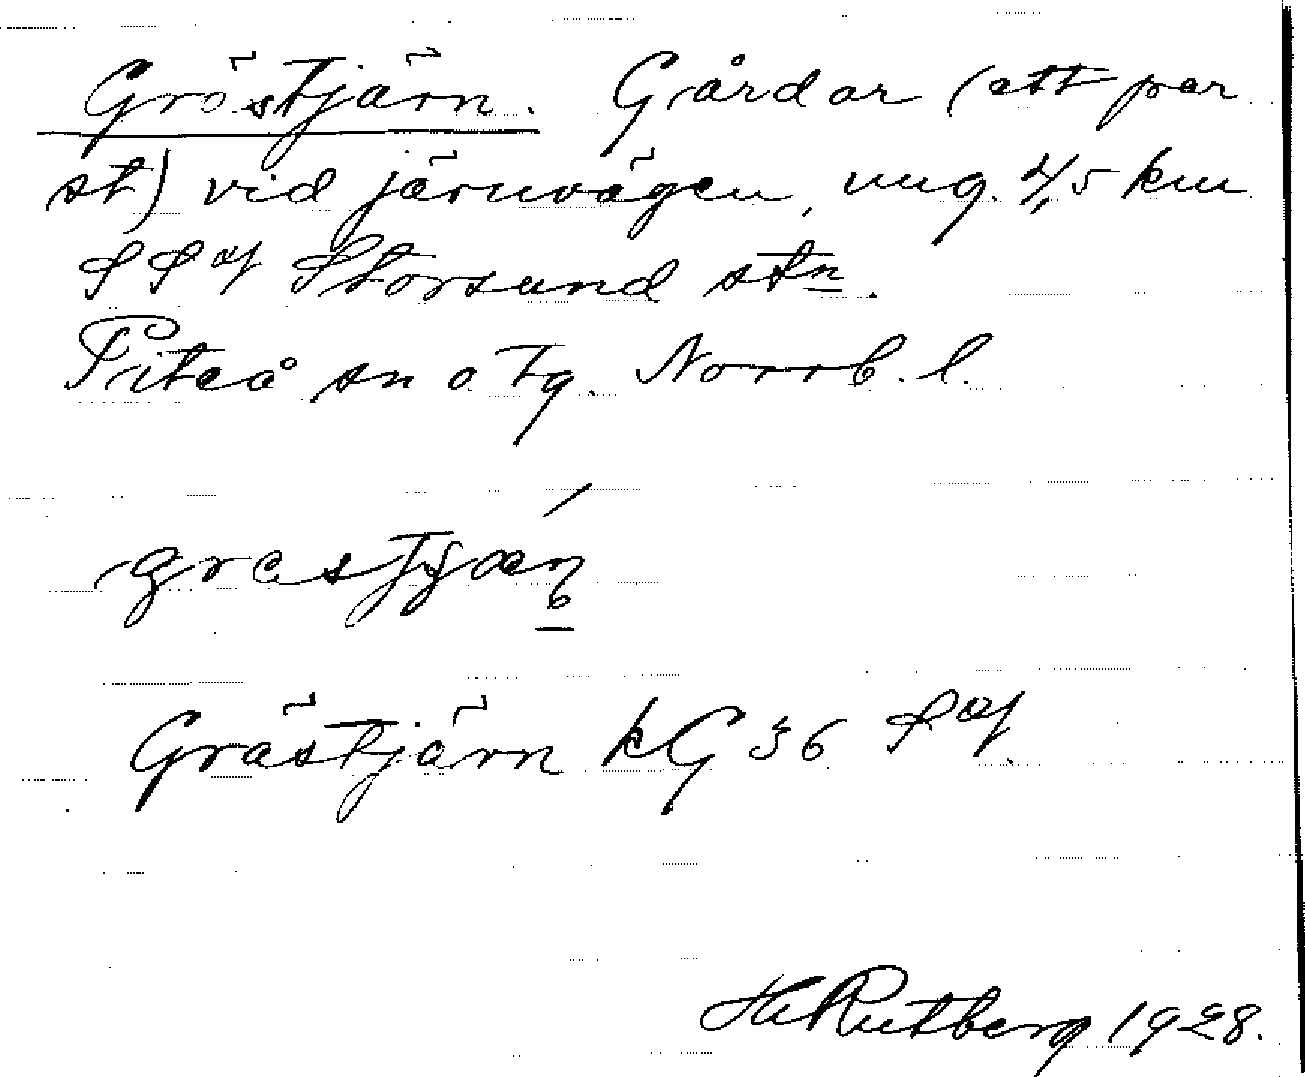 Grästjärn. Gårdar (ett par
st) vid järnvägen, ung. 4,5 km
SSO Storsund stn.
Piteå sn o tg. Norrb. l.
Grästjärn kG 36 SO.
H Rutberg 1928.